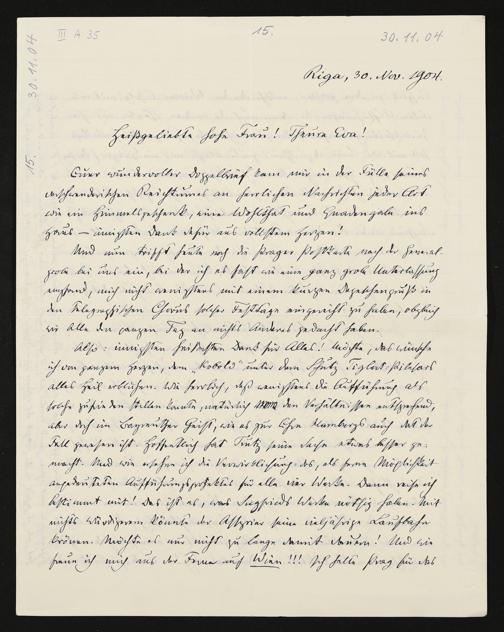 III A 35
15.
30.11.04
30.11.04
15.
Riga, 30. Nov. 1904.
Heißgeliebte hohe Frau! Theure Eva!
Euer wundervoller Doppelbrief kam mir in der Fülle seines
verschwenderischen Reichtumes an herrlichen Nachrichten jeder Art
wie ein Himmelsgeschenk, eine Wohlthat und Gnadengabe ins
Haus — innigsten Dank dafür aus vollstem Herzen!
Und nun trifft heute noch die Prager Postkarte nach der General-
probe bei uns ein, bei der ich es fast wie eine ganz grobe Unterlassung
empfand, mich nicht wenigstens mit einem kurzen Depeschengruß in
den telegraphischen Chorus solcher Festtage eingereiht zu haben, obgleich
wir Alle den ganzen Tag an nichts Anderes gedacht haben.
Also: innigsten heißesten Dank für Alles! Möchte, das wünsche
ich von ganzem Herzen, dem „Kobold" unter dem Schutz
alles Heil erblühen. Wie herrlich, daß wenigstens die Aufführung als
solche zufrieden stellen konnte, natürlich den Verhältnissen entsprechend,
aber doch im Bayreuther Geist, wie es zur Ehre Hamburgs auch dort der
Fall gewesen ist. Hoffentlich hat seine Sache etwas besser ge-
macht. Und wie ersehne ich die Verwirklichung des, als ferne Möglichkeit
angedeuteten Aufführungsprojektes für alle vier Werke. Dann reise ich
bestimmt mit! Das ist es, was Siegfrieds Werke nöthig haben. Mit
nichts Würdigerem könnte der seine vieljährige Laufbahn
krönen. Möchte es nur nicht zu lange damit dauern! Und wie
freue ich mich aus der Ferne auf Wien!!! Ich halte Prag für das